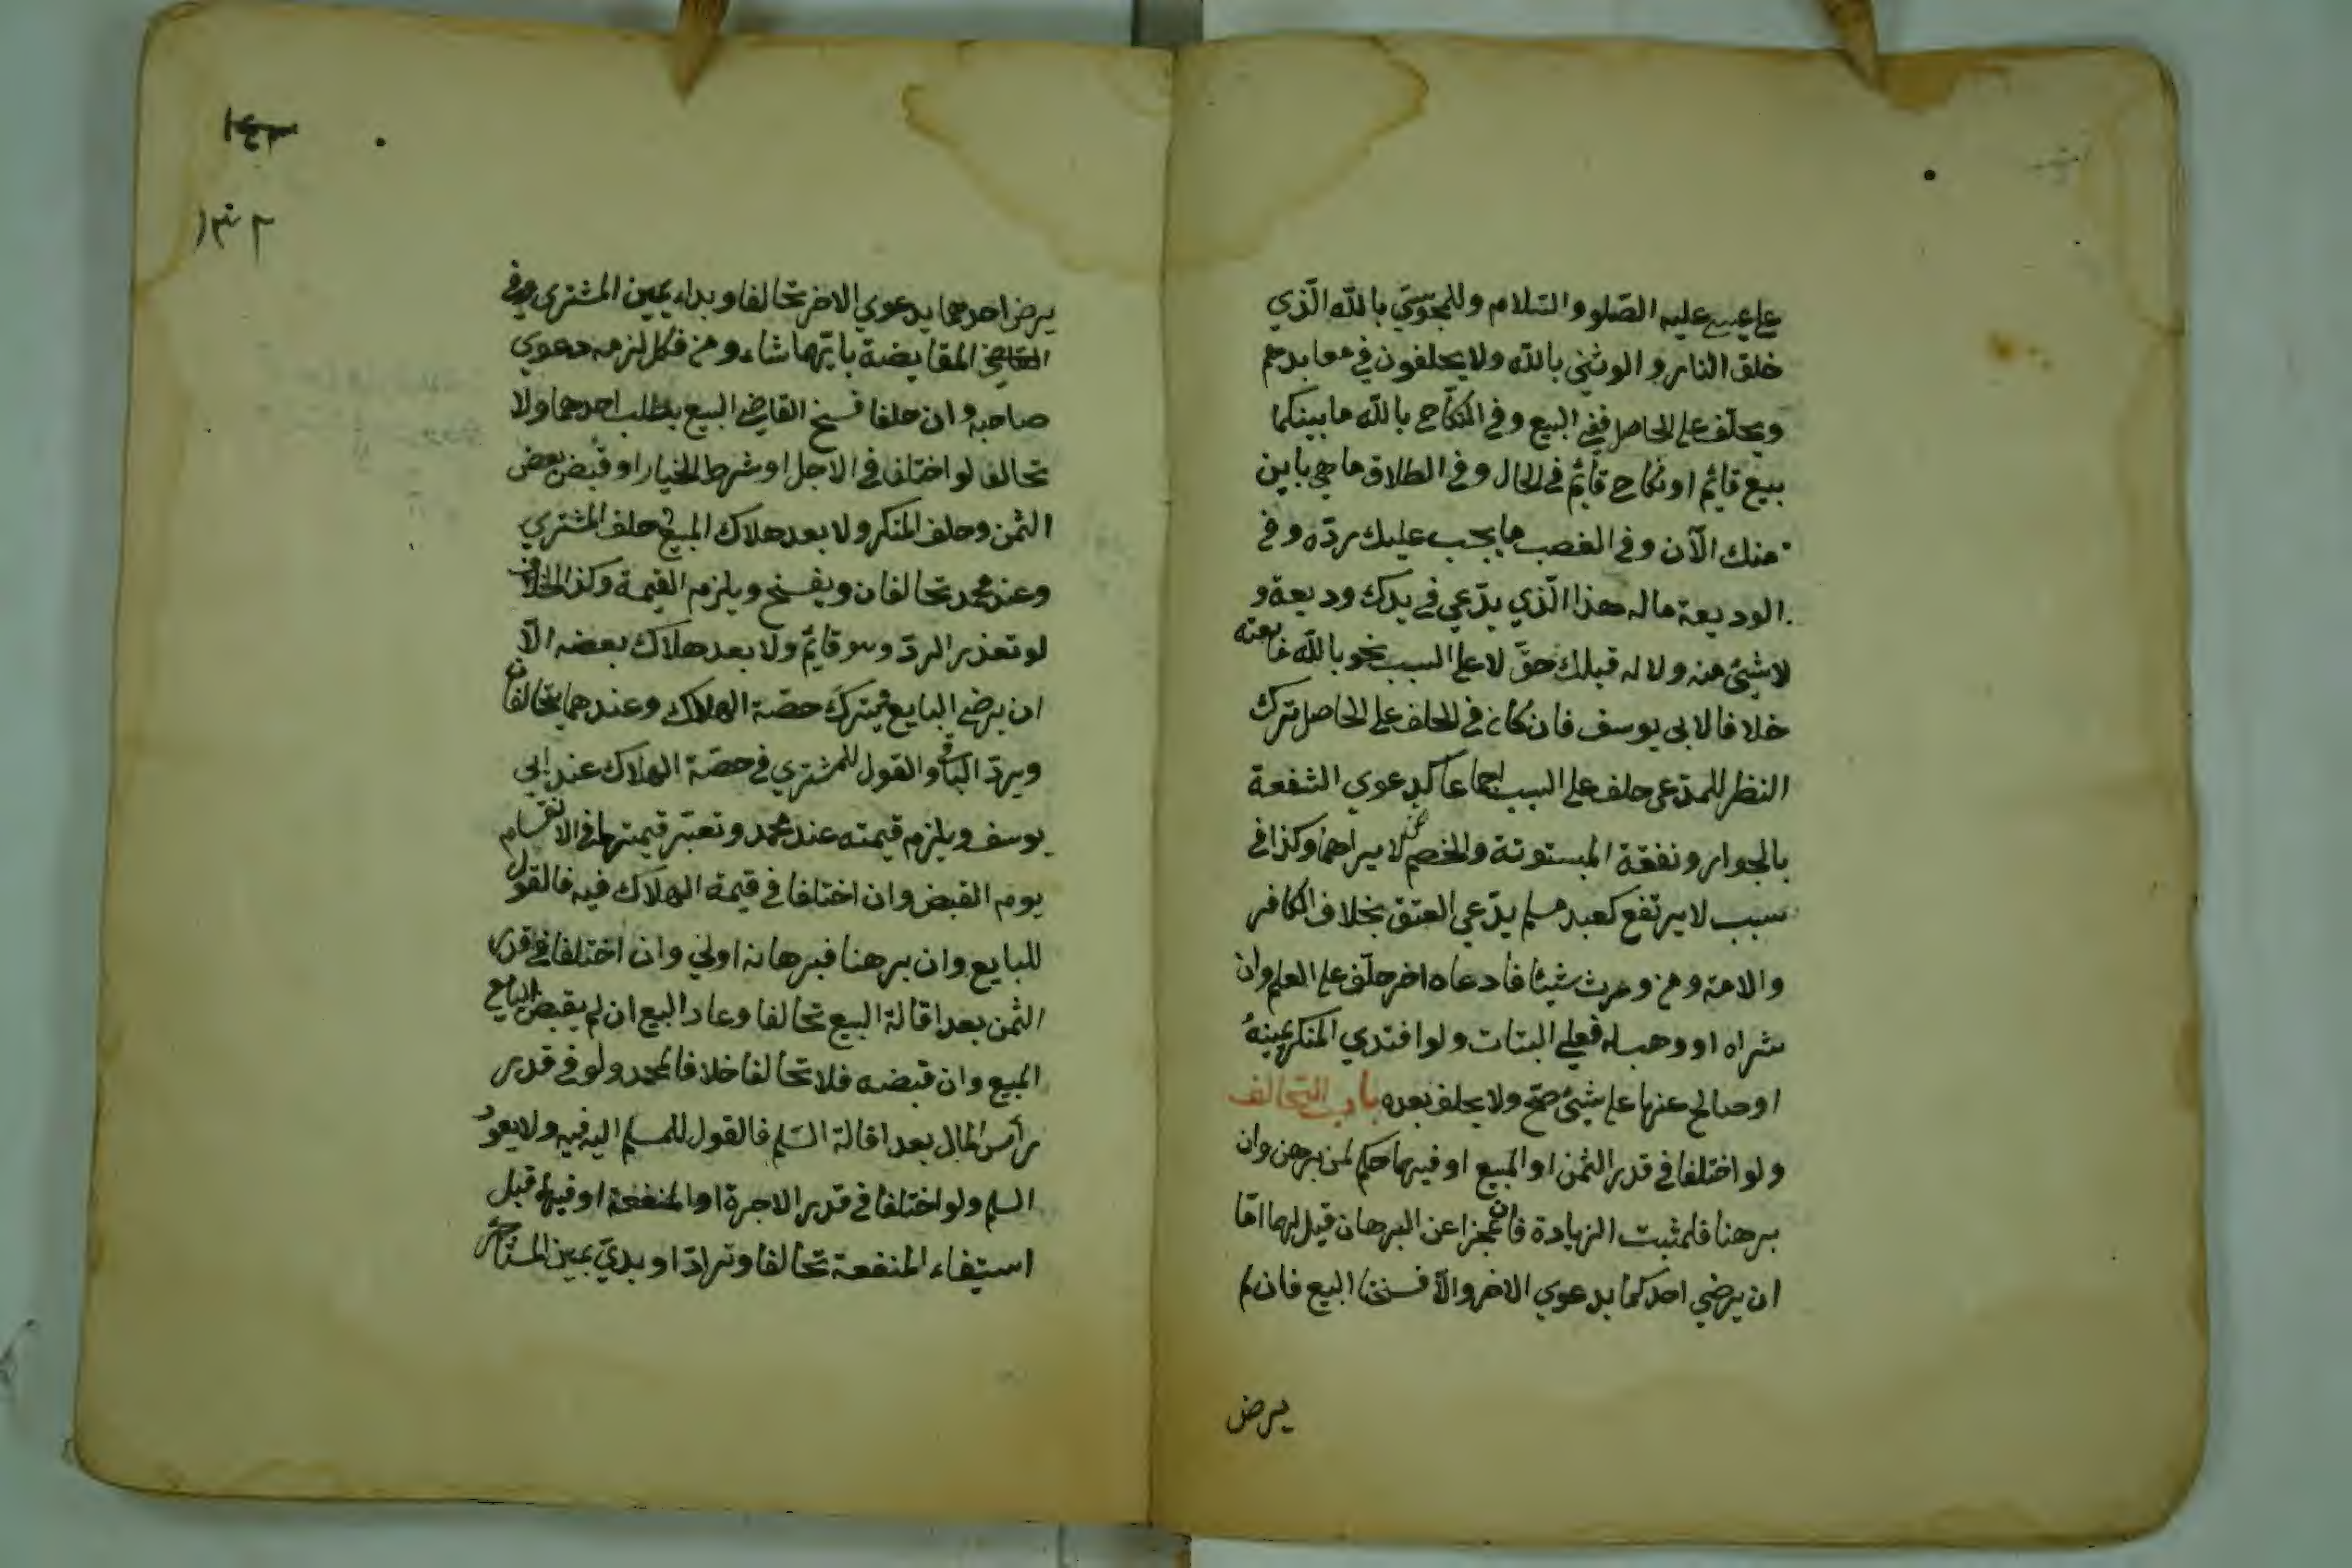 على عيسى عليه الصّلو والسّلام وللمجوسيّ بالله الّذي
خلق النار والوثني بالله ولا يحلفون في معابدهم
ويحلّف على الحاصل ففي البيع وفي النّكاح بالله ما بينكما
بيع قائم او نكاح قائم في الحال وفي الطلاق ما هي باين
منك الآن وفي الغصب ما يجب عليك ردّه وفي
الوديعة ماله هذا الّذي يدّعي في يدك وديعة و
لا شيئ منه ولا له قبلك حقّ لا على السبب نحو بالله ما بعته
خلافا لابي يوسف فان كان في الحلف على الحاصل ترك
النظر للمدّعي حلف على السبب اجماعا كدعوي الشفعة
بالجوار ونفقة المبتوتة والخصم ممن لا يراهما وكذا في
سبب لا يرتفع كعبد مسلم يدّعي العتق بخلاف الكافر
والامة ومن ورث شيئا فادعاه اخر حلّف على العلم وان
شراه او وهب له فعلي البتات ولو افتدي المنكر يمينهُ
او صالح عنها على شيئ صحّ ولا يحلف بعده باب التحالف
ولو اختلفا في قدر الثمن او المبيع او فيهما حكم لمن برهن وان
برهنا فلمثبت الزيادة فان عجزا عن البرهان قيل لهما امّا
ان يرضي احدكما بدعوي الاخر والّا فسخنا البيع فان لم
يرض
يرض احدهما بدعوي الاخر تحالفا وبداء بيمين المشتري وفي
المقايضة بايّهما شاء ومن نكل لزمه دعوي
صاحبه وان حلفا فسخ القاضي البيع بطلب احدهما ولا
تحالف لو اختلفا في الاجل او شرط الخيار او قبض بعض
الثمن وحلف المنكر ولا بعد هلاك المبيع حلف المشتري
وعند محمد تحالفان ويفسخ ويلزم القيمة وكذا الخلاف
لو تعذر الردّ وهو قايم ولا بعد هلاك بعضه الّا
ان يرضي البايع بترك حصّة الهلاك وعندهما يتحالفان
ويردّ الباقي والقول للمشتري في حصّة الهلاك عند ابي
يوسف ويلزم قيمته عند محمد وتعتبر قيمتهما في الانقسام
يوم القبض وان اختلفا في قيمة الهلاك فيه فالقول
للبايع وان برهنا فبرهانه اولي وان اختلفا في قدر
الثمن بعد اقالة البيع تحالفا وعاد البيع ان لم يقبض البايع
المبيع وان قبضه فلا تحالفا خلافا لمحمد ولو في قدر
رأس المال بعد اقالة السّلم فالقول للمسلم اليه فيه ولا يعود
السلم ولو اختلفا في قدر الاجرة او المنفعة او فيهما قبل
استيفاء المنفعة تحالفا وترادّا وبدئ بيمين المستأجر